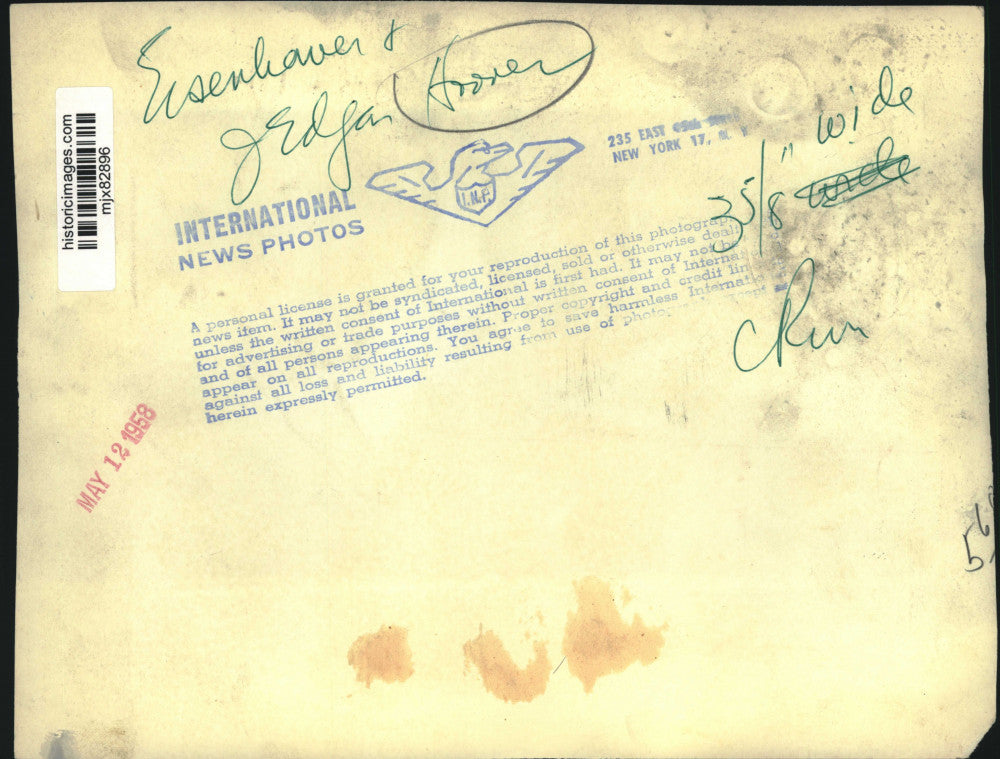 Eisenhower &
J Edgar Hoover
historicimages.com
mjx82896
INTERNATIONAL
NEWS PHOTOS
I.N.P.
235 EAST 45th
NEW YORK 17, N. Y.
3 5/8" wide
wide
A personal license is granted for your reproduction of this photograph
news item. It may not be syndicated, licensed, sold or otherwise deal
unless the written consent of International is first had. It may not be
for advertising or trade purposes without written consent of Interna
and of all persons appearing therein. Proper copyright and credit lin
appear on all reproductions. You agree to save harmless Internati
against all loss and liability resulting from use of photo
herein expressly permitted.
MAY 12 1958
56